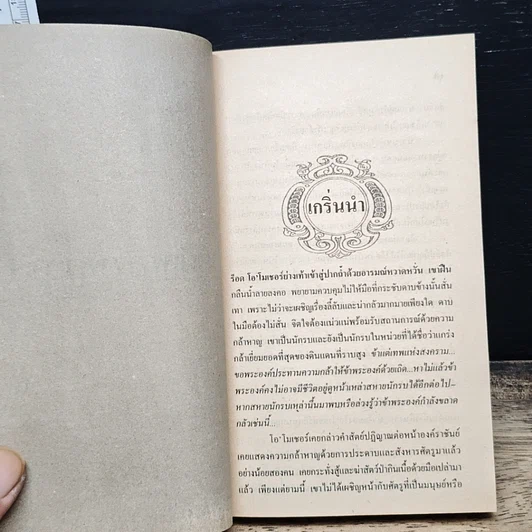 เกริ่นนำ
ร็อด โอ'โมเชอร์ย่างเท้าเข้าสู่ปากถ้ำด้วยอารมณ์หวาดหวั่น เขาฝืน
กลืนน้ำลายลงคอ พยายามควบคุมไม่ให้มือที่กระชับดาบข้างนั้นสั่น
เทา เพราะไม่ว่าจะเผชิญเรื่องลี้ลับและน่ากลัวมากมายเพียงใด ดาบ
ในมือต้องไม่สั่น จิตใจต้องแน่วแน่พร้อมรับสถานการณ์ด้วยความ
กล้าหาญ เขาเป็นนักรบและยังเป็นนักรบในหน่วยที่ได้ชื่อว่าแกร่ง
กล้าเยี่ยมยอดที่สุดของดินแดนที่ราบสูง ข้าแต่เทพแห่งสงคราม...
ขอพระองค์ประทานความกล้าให้ข้าพระองค์ด้วยเถิด...หาไม่แล้วข้า
พระองค์คงไม่อาจมีชีวิตอยู่ดูหน้าเหล่าสหายนักรบได้อีกต่อไป–
หากสหายนักรบเหล่านั้นมาพบหรือล่วงรู้ว่าข้าพระองค์กำลังขลาด
กลัวเช่นนี้...
โอ'โมเชอร์เคยกล่าวคำสัตย์ปฏิญาณต่อหน้าองค์ราชันย์
เคยแสดงความกล้าหาญด้วยการประดาบและสังหารศัตรูมาแล้ว
อย่างน้อยสองคน เคยกระทั่งสู้และฆ่าสัตว์ป่ากินเนื้อด้วยมือเปล่ามา
แล้ว เพียงแต่ยามนี้ เขาไม่ได้เผชิญหน้ากับศัตรูที่เป็นมนุษย์หรือ